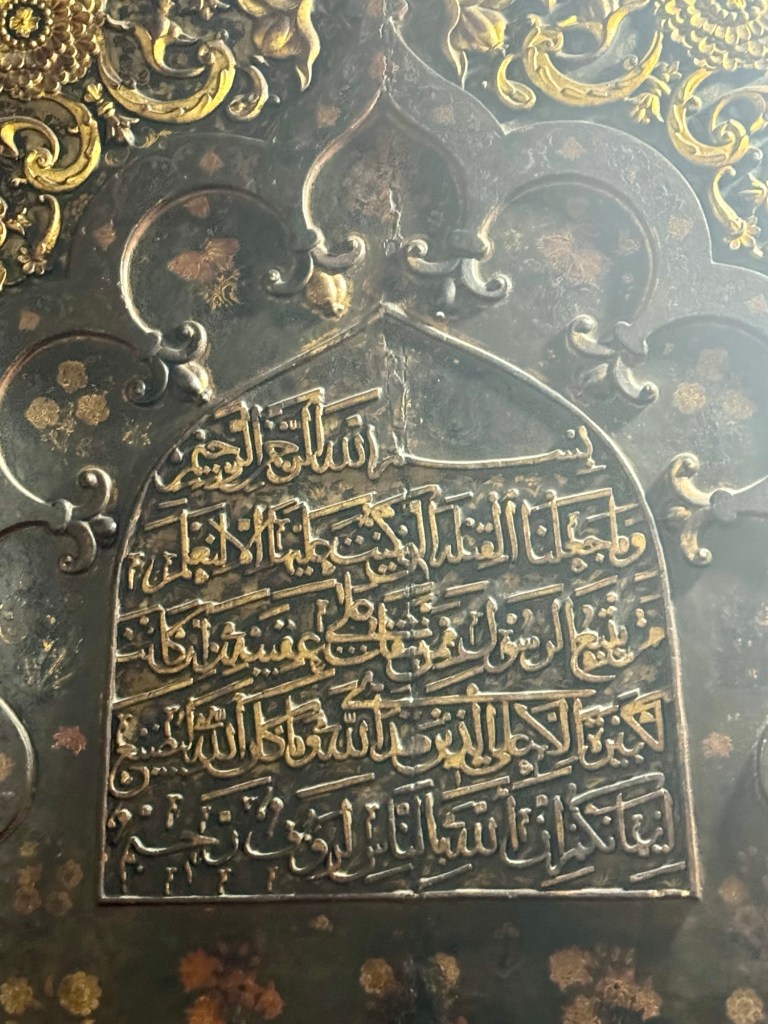 بسم الله الرحمن الرحيم
وما جعلنا القبلة التي كنت عليها الا لنعلم
من يتبع الرسول ممن ينقلب على عقبيه وان كانت
لكبيرة الا على الذين هدى الله وما كان الله ليضيع
ايمانكم ان الله بالناس لرؤف رحيم